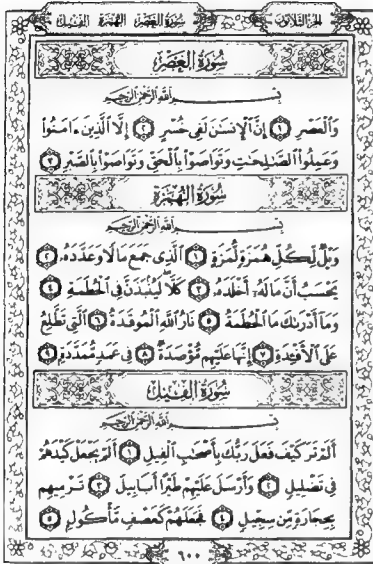 الجزء الثلاثون سورة العصر الهمزة الفيل
سورة العصر
بسم الله الرحمن الرحيم
وَٱلْعَصْرِ ١ إِنَّ ٱلْإِنسَٰنَ لَفِى خُسْرٍ ٢ إِلَّا ٱلَّذِينَ ءَامَنُوا۟
وَعَمِلُوا۟ ٱلصَّٰلِحَٰتِ وَتَوَاصَوْا۟ بِٱلْحَقِّ وَتَوَاصَوْا۟ بِٱلصَّبْرِ ٣
سورة الهمزة
بسم الله الرحمن الرحيم
وَيْلٌ لِّكُلِّ هُمَزَةٍ لُّمَزَةٍ ١ ٱلَّذِى جَمَعَ مَالًا وَعَدَّدَهُۥ ٢
يَحْسَبُ أَنَّ مَالَهُۥٓ أَخْلَدَهُۥ ٣ كَلَّا لَيُنۢبَذَنَّ فِى ٱلْحُطَمَةِ ٤
وَمَآ أَدْرَىٰكَ مَا ٱلْحُطَمَةُ ٥ نَارُ ٱللَّهِ ٱلْمُوقَدَةُ ٦ ٱلَّتِى تَطَّلِعُ
عَلَى ٱلْأَفْـِٔدَةِ ٧ إِنَّهَا عَلَيْهِم مُّؤْصَدَةٌ ٨ فِى عَمَدٍ مُّمَدَّدَةٍۭ ٩
سورة الفيل
بسم الله الرحمن الرحيم
أَلَمْ تَرَ كَيْفَ فَعَلَ رَبُّكَ بِأَصْحَٰبِ ٱلْفِيلِ ١ أَلَمْ يَجْعَلْ كَيْدَهُمْ
فِى تَضْلِيلٍ ٢ وَأَرْسَلَ عَلَيْهِمْ طَيْرًا أَبَابِيلَ ٣ تَرْمِيهِم
بِحِجَارَةٍ مِّن سِجِّيلٍ ٤ فَجَعَلَهُمْ كَعَصْفٍ مَّأْكُولٍۭ ٥
٦٠٠